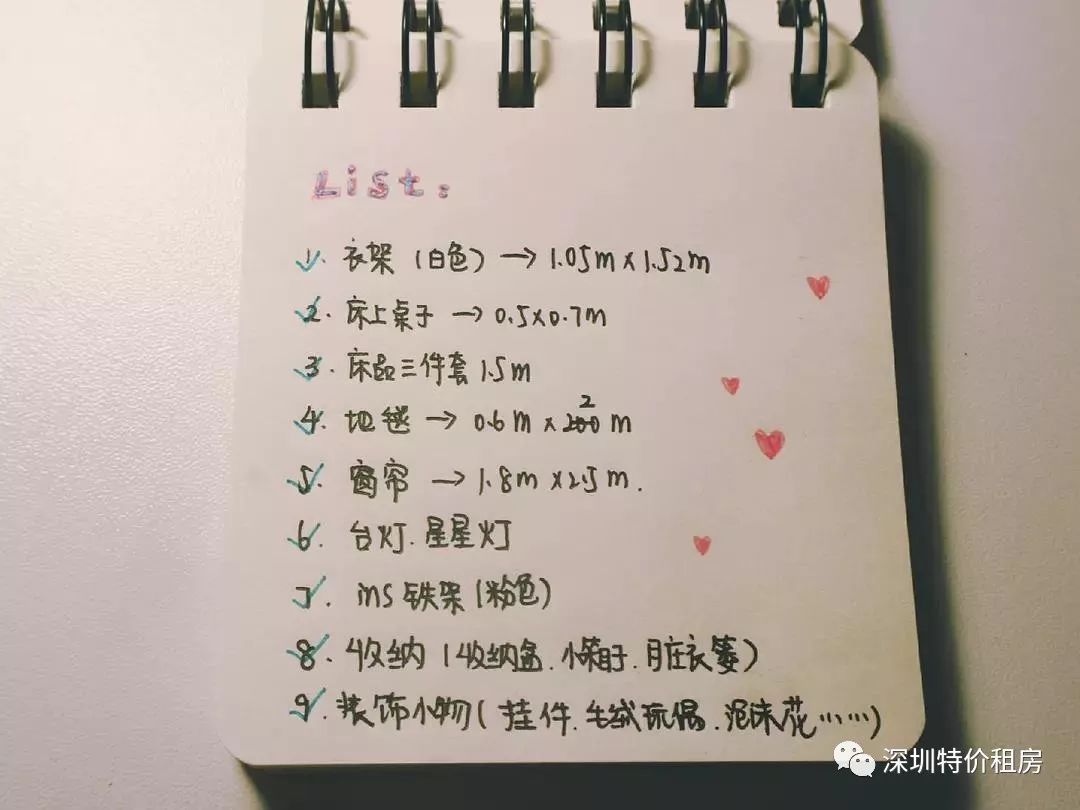 List:
1. 衣架（白色）→ 1.05m x 1.52m
2. 床上桌子 → 0.5x0.7m
3. 床品三件套 1.5m
4. 地毯 → 0.6m x 2 m
5. 窗帘 → 1.8m x 2.5m.
6. 台灯.星星灯
7. ins 铁架（粉色）
8. 收纳（收纳盒.小箱子.脏衣篓）
9. 装饰小物（挂件.毛绒玩偶.泡沫花……）
深圳特价租房